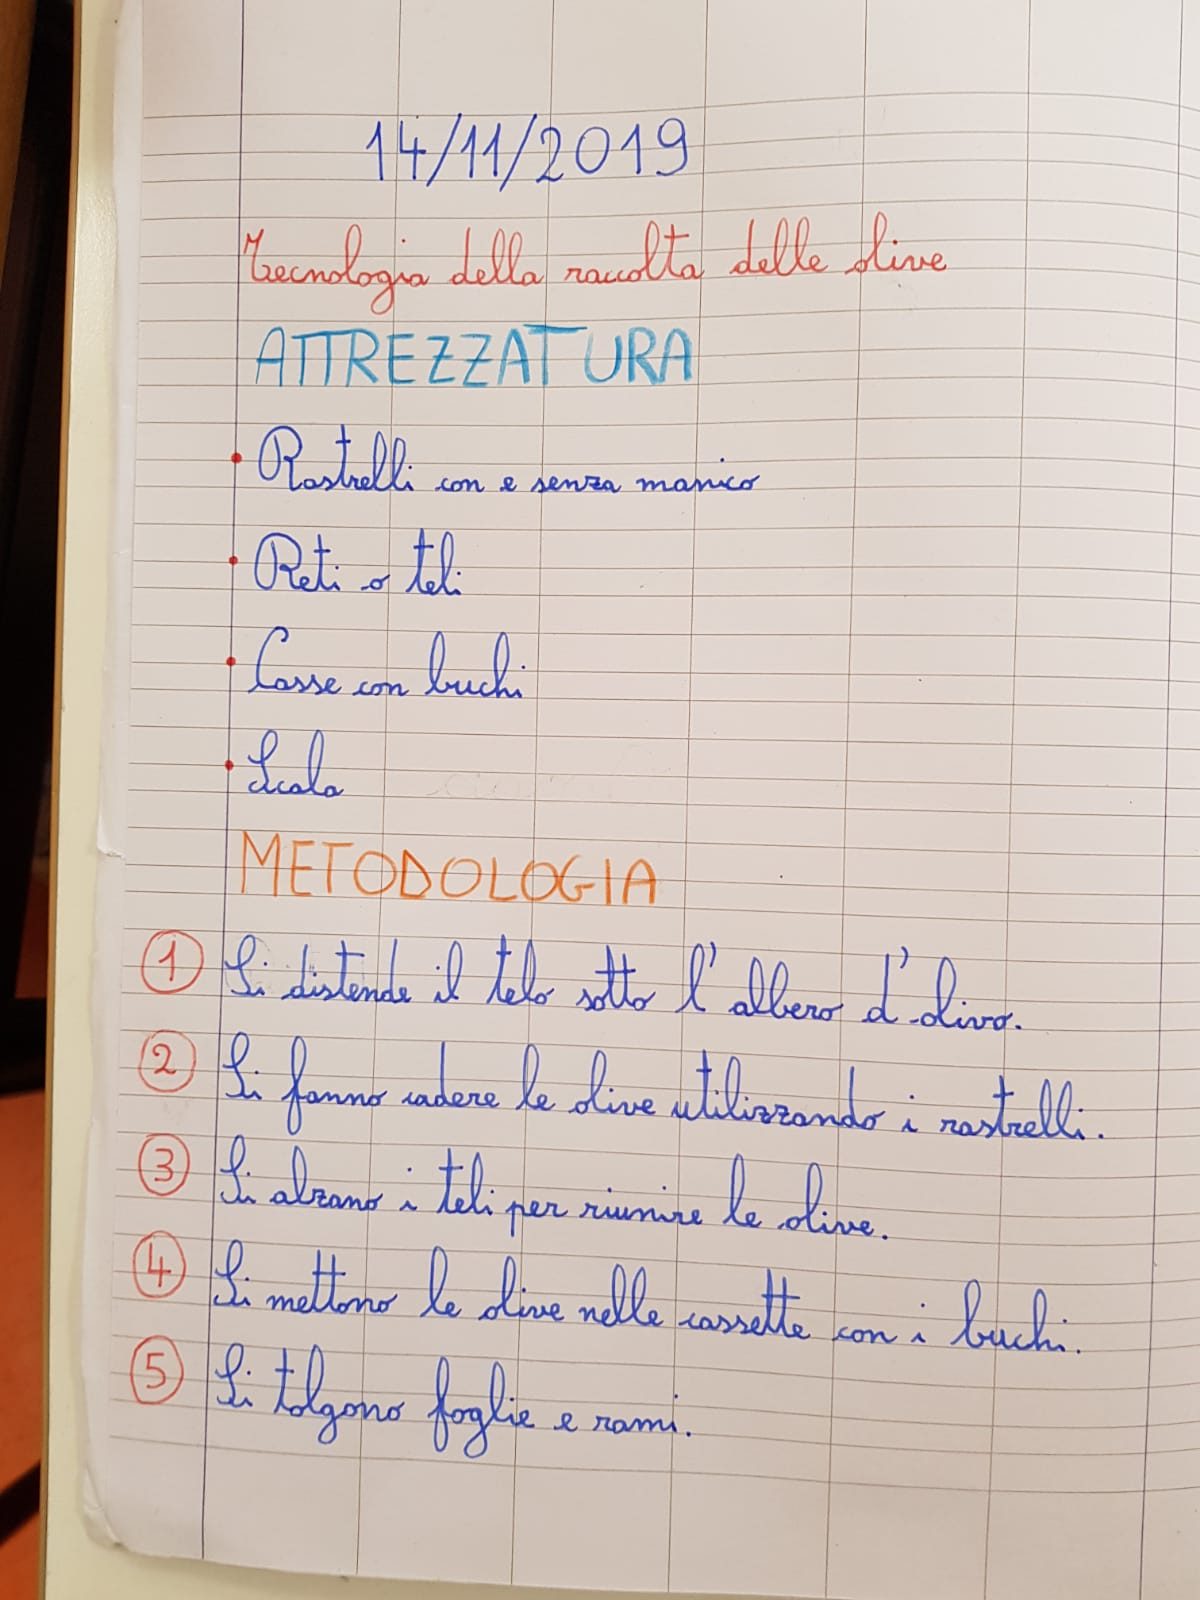 14/11/2019
Tecnologia della raccolta delle olive
ATTREZZATURA
• Rastrelli con e senza manico
• Reti o teli
• Casse con buchi
• Scala
METODOLOGIA
1 Si distende il telo sotto l'albero d'olivo.
2 Si fanno cadere le olive utilizzando i rastrelli.
3 Si alzano i teli per riunire le olive.
4 Si mettono le olive nelle cassette con i buchi.
5 Si tolgono foglie e rami.